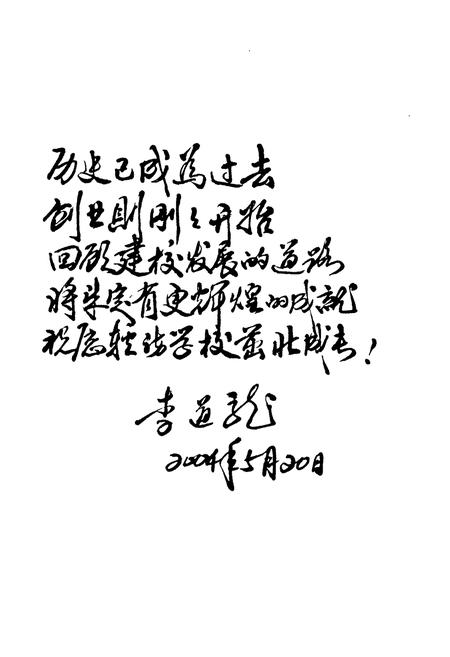 历史已成為过去
创业則刚々开始
回顾建校发展的道路
将来定有更辉煌的成就
祝愿轻纺学校茁壮成长！
李道龙
2004年5月20日